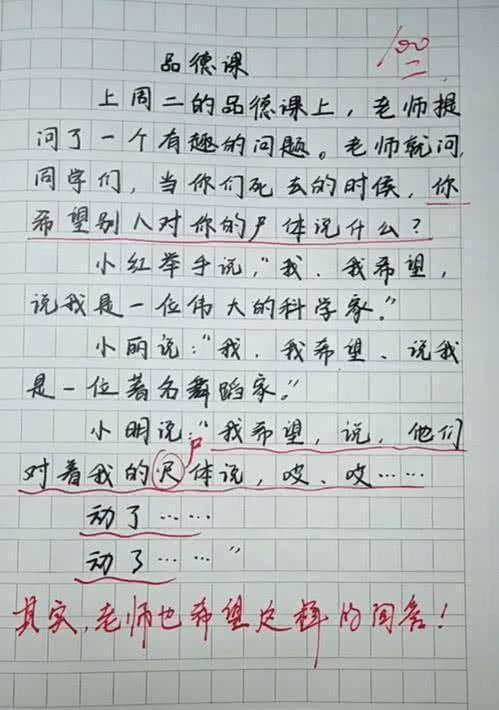 品德课
100
上周二的品德课上，老师提
问了一个有趣的问题。老师就问，
同学们，当你们死去的时候，你
希望别人对你的尸体说什么？
小红举手说，“我．我希望，
说我是一位伟大的科学家。”
小丽说：“我．我希望、说我
是一位著名舞蹈家。”
小明说：“我希望，说，他们
尸
对着我的尺体说，哎、哎……
动了……
动了……”
其实，老师也希望这样的回答！